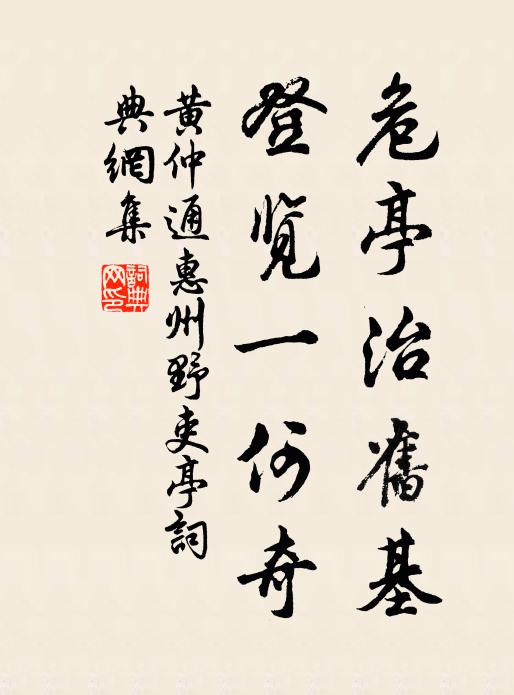 危亭治舊基
登览一何奇
黄仲通惠州野吏亭詞
典網集
詞典
网印